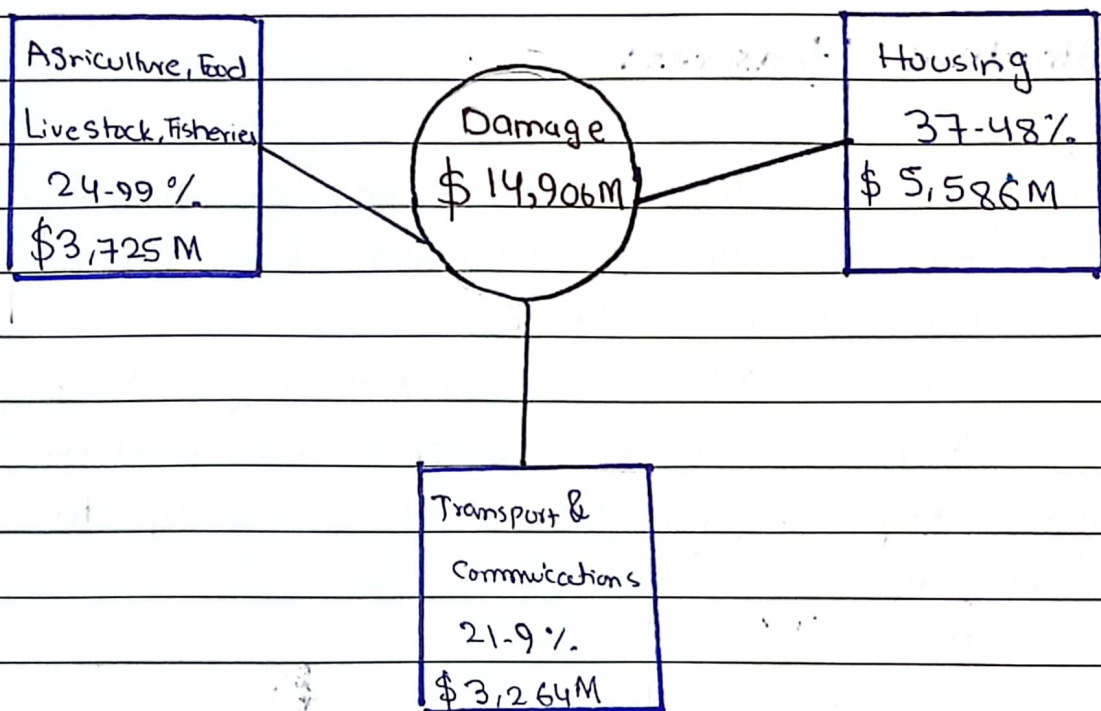 Agriculture, Food
Livestock, Fisheries
24-99%
$3,725 M
Damage
$ 14,906M
Housing
37-48%
$ 5,586M
Transport &
Commuications
21-9%
$3,264M